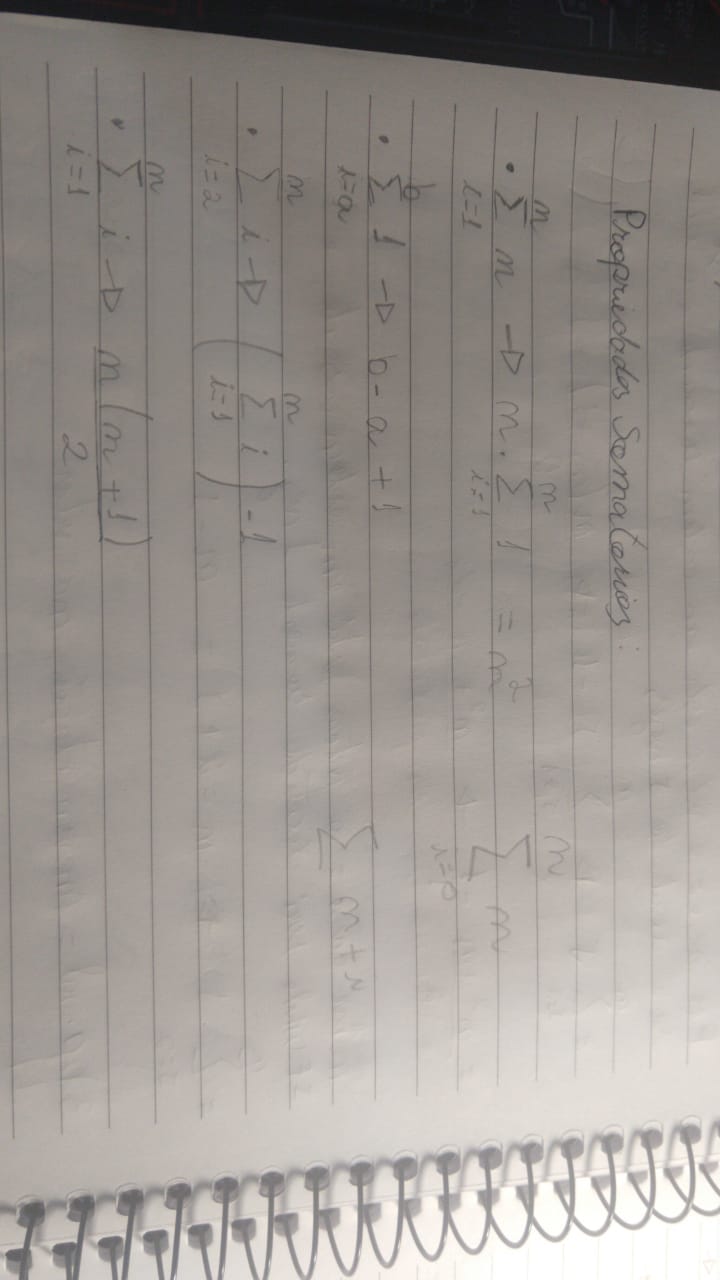 Propriedades Somatorios:
• ∑_{i=1}^{n} n → n . ∑_{i=1}^{n} 1 = n²
∑_{i=0}^{n} n
• ∑_{i=a}^{b} 1 → b - a + 1
∑ n + i
• ∑_{i=2}^{n} i → ( ∑_{i=1}^{n} i ) - 1
• ∑_{i=1}^{n} i → n(n+1)/2